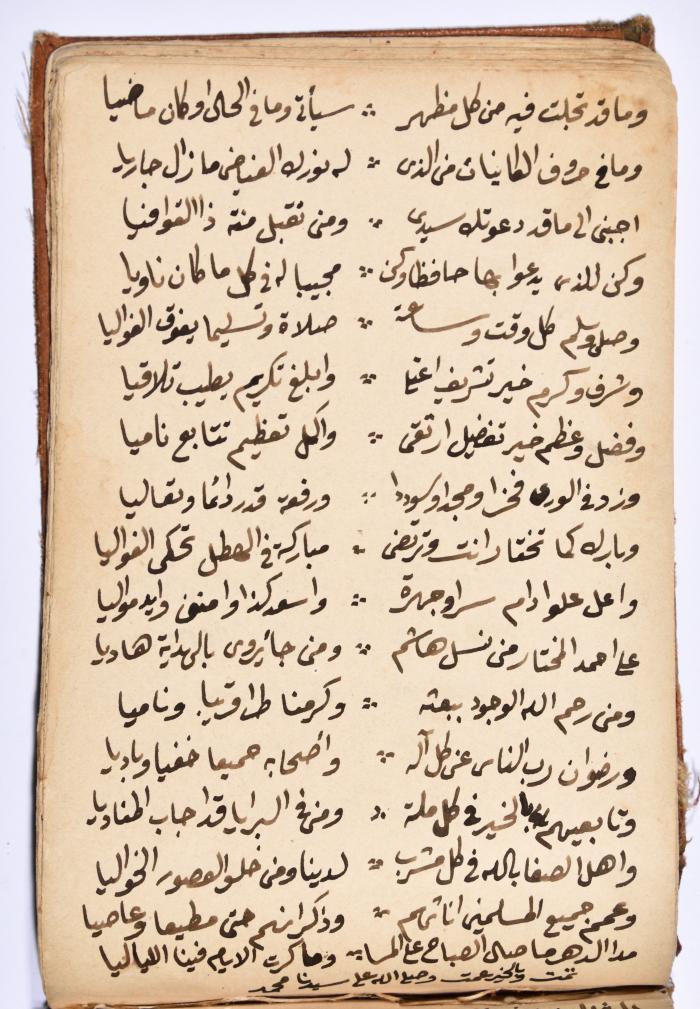 وما قد تجلت فيه من كل مظهر ∴ سيأتي وما في الحال او كان ماضيا
وما في حروف الكاينات من الذي ∴ له نورك الفياض ما زال جاريا
اجبني الى ما قد دعوتك سيدي ∴ ومن تقبل منه ذا القوافيا
وكن للذي يدعوا بها حافظا وكن ∴ مجيبا له في كل ما كان ناويا
وصلى وسلم كل وقت وساعة ∴ صلاة وتسليما يفوق الغواليا
وشرف وكرم خير تشريف اعتلى ∴ وابلغ تكريم يطيب تلاقيا
وفضل وعظم خير تفضيل ارتقى ∴ واكمل تعظيم تتابع ناميا
وزد في الورى فخرا ومجدا وسوددا ∴ ورفعة قدر دائما وتعاليا
وبارك كما تختار انت وترتضى ∴ مباركة في الهطل تحكى الغواليا
واعل علوا دام سرا وجهرة ∴ واسعد كذا وامنن وايد مواليا
على احمد المختار من نسل هاشم ∴ ومن جا يروى بالهداية هاديا
ومن رحم الله الوجود ببعثه ∴ وكرمنا طرا قريبا وناميا
ورضوان رب الناس عن كل آله ∴ واصحابه جميعا خفيا وباديا
وتابعيهم بالخير في كل ملة ∴ ومن في البرايا قد اجاب المناديا
واهل الصفا بالله في كل مشرب ∴ لدينا ومن خلو العصور الخواليا
وعمم جميع المسلمين اناثهم ∴ وذكرانهم حتى مطيعا وعاصيا
مدا الدهر ما صال الصباح على المسا ∴ وما كرت الايام فينا اللياليا
تمت وبالخير عمت وصلى الله على سيدنا محمد